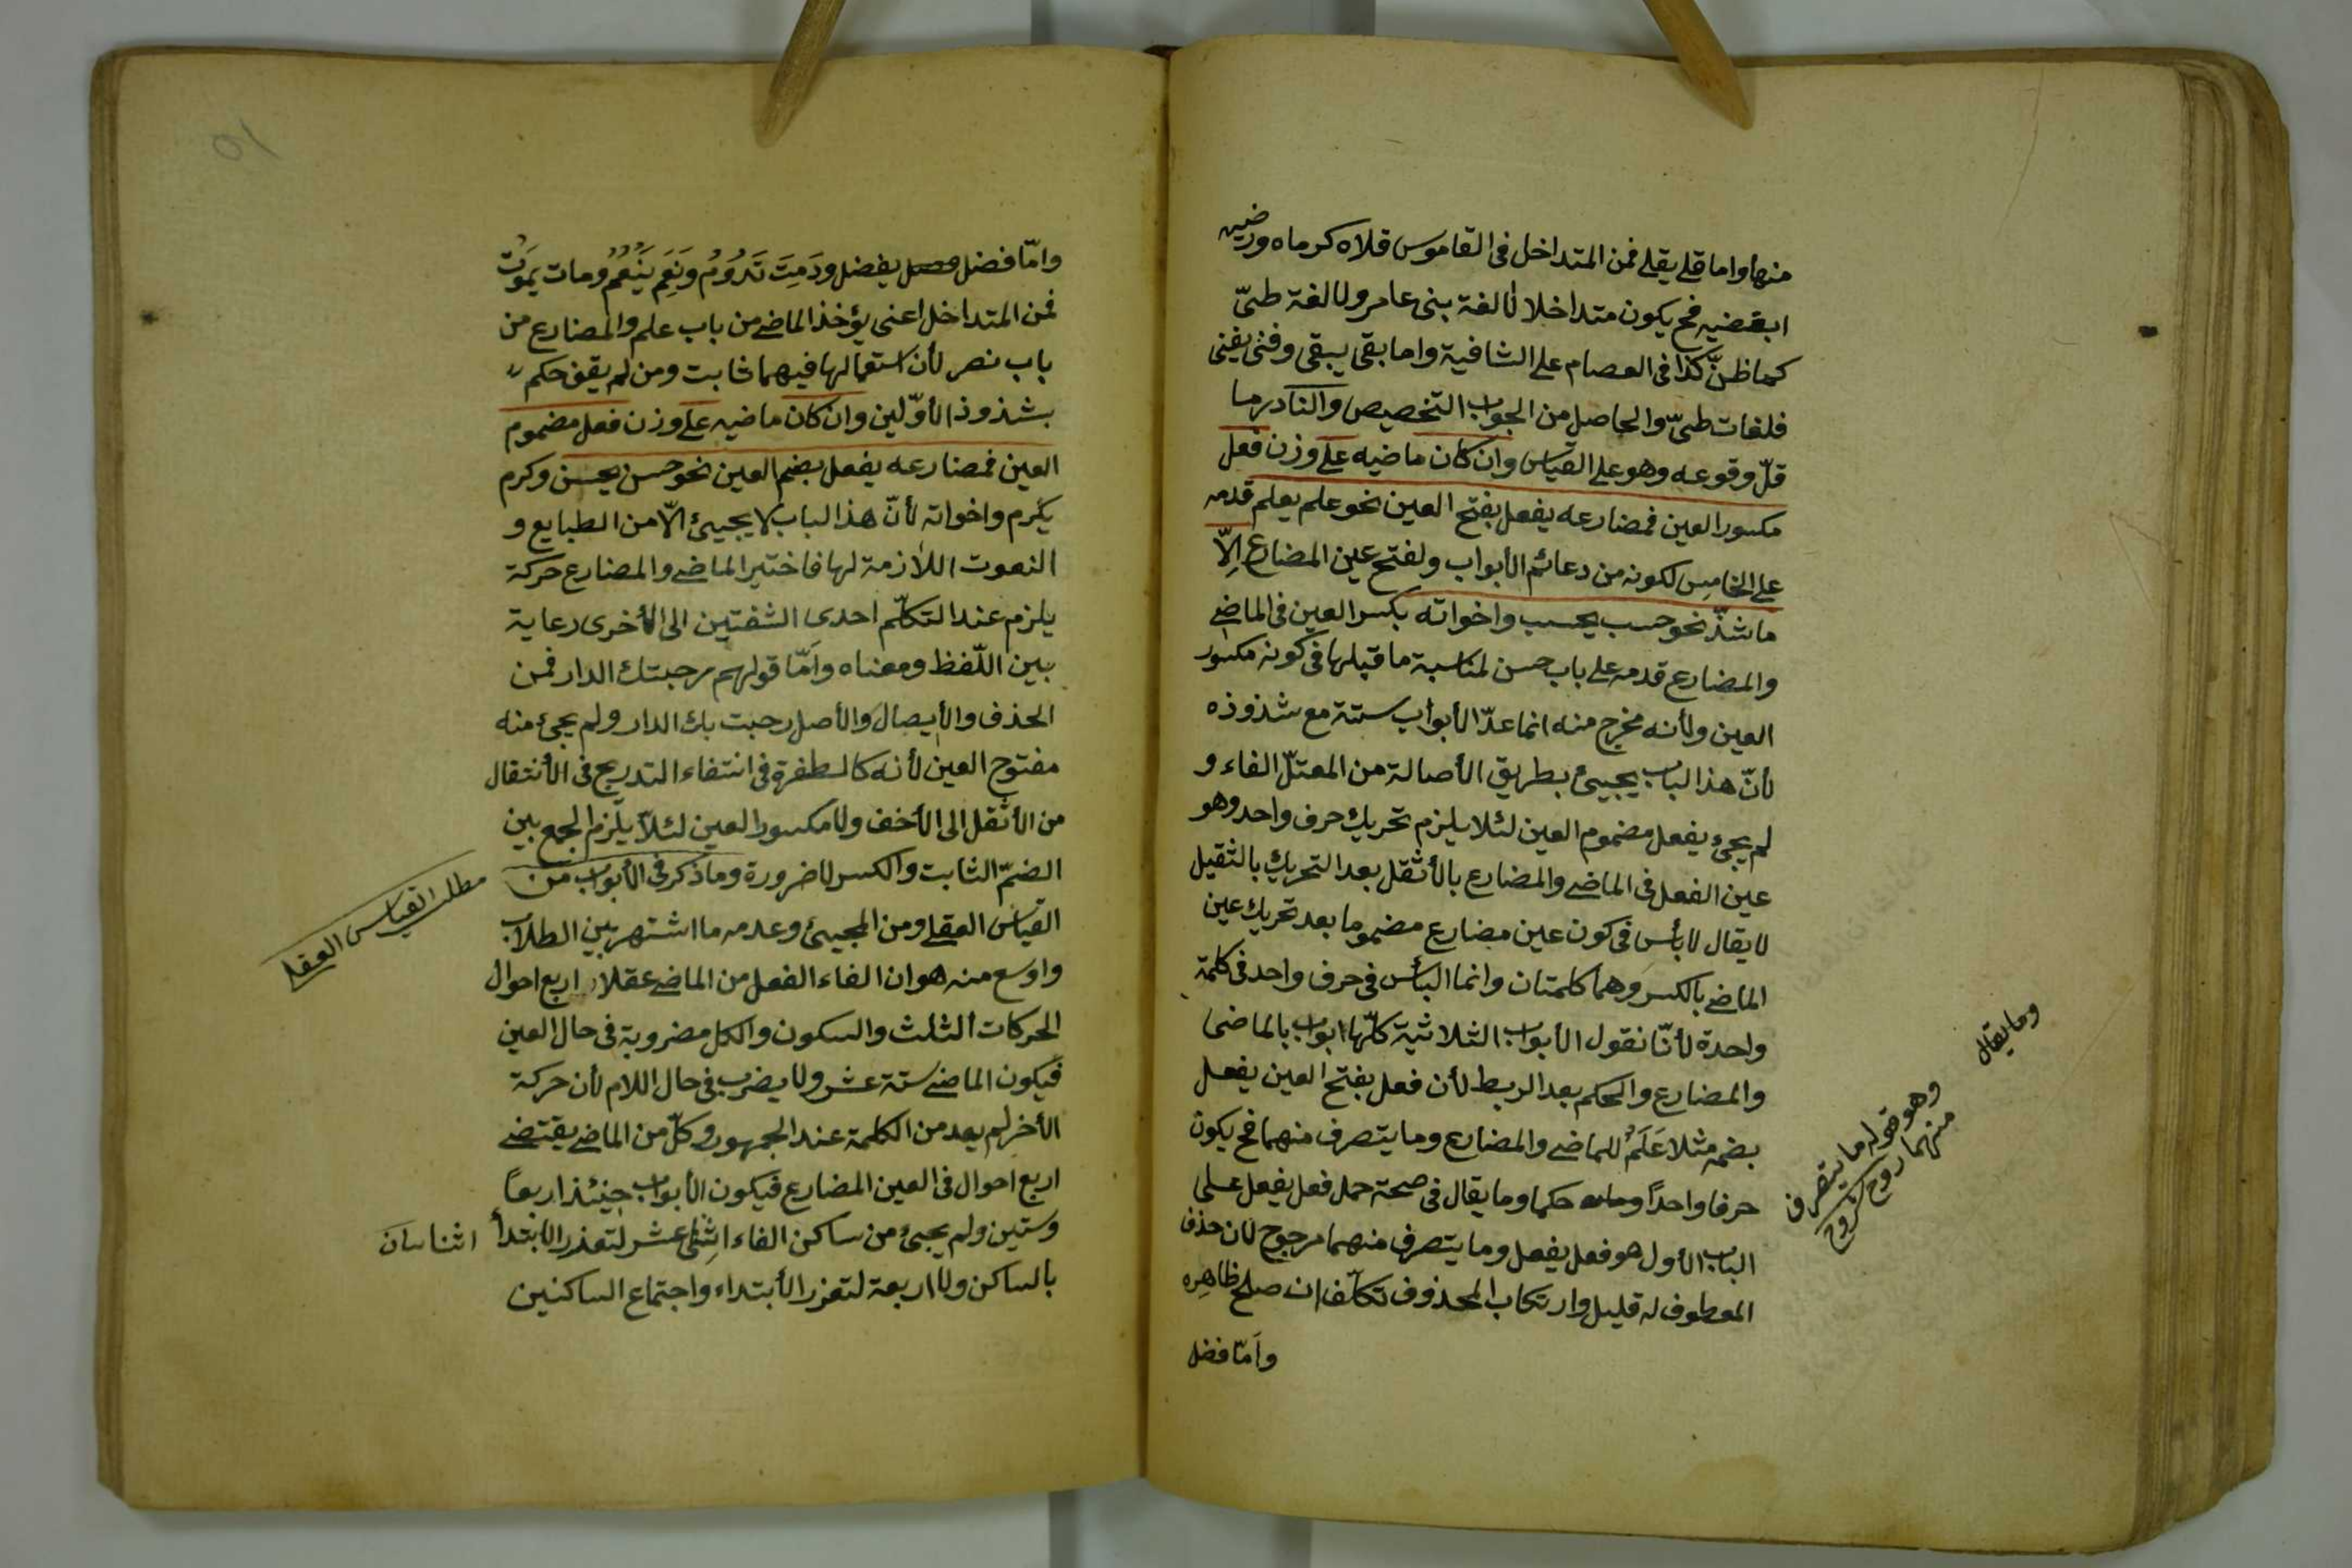 منها واما قلى يقلى فمن المتداخل في القاموس قلاه كرماه ورضيه
ابغضيه فح يكون متداخلا لا لغة بنى عامر ولا لغة طىّ
كما ظنّ كذا في العصام على الشافية واما بقى يبقى وفنى يفنى
فلغات طىّ والحاصل من الجواب التخصيص والنادر ما
قلّ وقوعه وهو على القياس وان كان ماضيه على وزن فعل
مكسور العين فمضارعه يفعل بفتح العين نحو علم يعلم قدمه
على الخامس لكونه من دعائم الأبواب ولفتح عين المضارع الّا
ما شذّ نحو حسب يحسب واخواته بكسر العين في الماضى
والمضارع قدمه على باب حسن لمناسبة ما قبلها في كونه مكسور
العين ولأنه مخرج منه انما عدّ الأبواب ستة مع شذوذه
لأنّ هذا الباب يجيئ بطريق الأصالة من المعتلّ الفاء و
لم يجئ يفعل مضموم العين لئلا يلزم تحريك حرف واحد وهو
عين الفعل في الماضى والمضارع بالأثقل بعد التحريك بالثقيل
لا يقال لا بأس في كون عين مضارع مضموما بعد تحريك عين
الماضى بالكسر وهما كلمتان وانما البأس في حرف واحد في كلمة
واحدة لأنّا نقول الأبواب الثلاثية كلّها ابواب بالماضى
والمضارع والحكم بعد الربط لأن فعل بفتح العين يفعل
بضمه مثلا عَلَمٌ للماضى والمضارع وما يتصرف منهما فح يكون
حرفا واحدًا حكما وما يقال في صحة حمل فعل يفعل على
الباب الأول هو فعل يفعل وما يتصرف منهما مرجوح لان حذف
المعطوف له قليل وارتكاب المحذوف تكلّف ان صلح ظاهره
وأمّا فضل
وما يقال
وهو قوله ما يتصرف
منهما روح الشروح
وامّا فضل يفضل ودَمِتَ تَدُوُمُ ونَعِمَ يَنْعُمُ ومات يموت
فمن المتداخل اعنى يؤخذ الماضى من باب علم والمضارع من
باب نصر لأن استعمالها فيهما ثابت ومن لم يقف حكم
بشذوذ الأوّلين وان كان ماضيه على وزن فعل مضموم
العين فمضارعه يفعل بضم العين نحو حسن يحسن وكرم
يكرم واخواته لأنّ هذا الباب لا يجيئ الّا من الطبايع و
النعوت اللازمة لها فاختير الماضى والمضارع حركة
يلزم عند التكلّم احدى الشفتين الى الأخرى رعاية
بين اللّفظ ومعناه وأمّا قولهم رحبتك الدار فمن
الحذف والأيصال والأصل رحبت بك الدار ولم يجئ منه
مفتوح العين لأنه كالطفرة في انتفاء التدريج في الأنتقال
من الأثقل الى الأخف ولا مكسور العين لئلّا يلزم الجمع بين
الضمّ الثابت والكسر لا ضرورة وما ذكر في الأبواب من
القياس العقلى ومن المجيئ وعدمه ما اشتهر بين الطلاب
واوسع منه هو ان الفاء الفعل من الماضى عقلا اربع احوال
الحركات الثلث والسكون والكل مضروبة في حال العين
فيكون الماضى ستة عشر ولا يضرب في حال اللام لأن حركة
الأخر لم يعد من الكلمة عند الجمهور وكلّ من الماضى يقتضى
اربع احوال في العين المضارع فيكون الأبواب حينئذ اربعًا
وستين ولم يجئ من ساكن الفاء اثنى عشر لتعذر الابتدأ
بالساكن ولا اربعة لتعذر الأبتداء واجتماع الساكنين
مطلب القياس العقلى